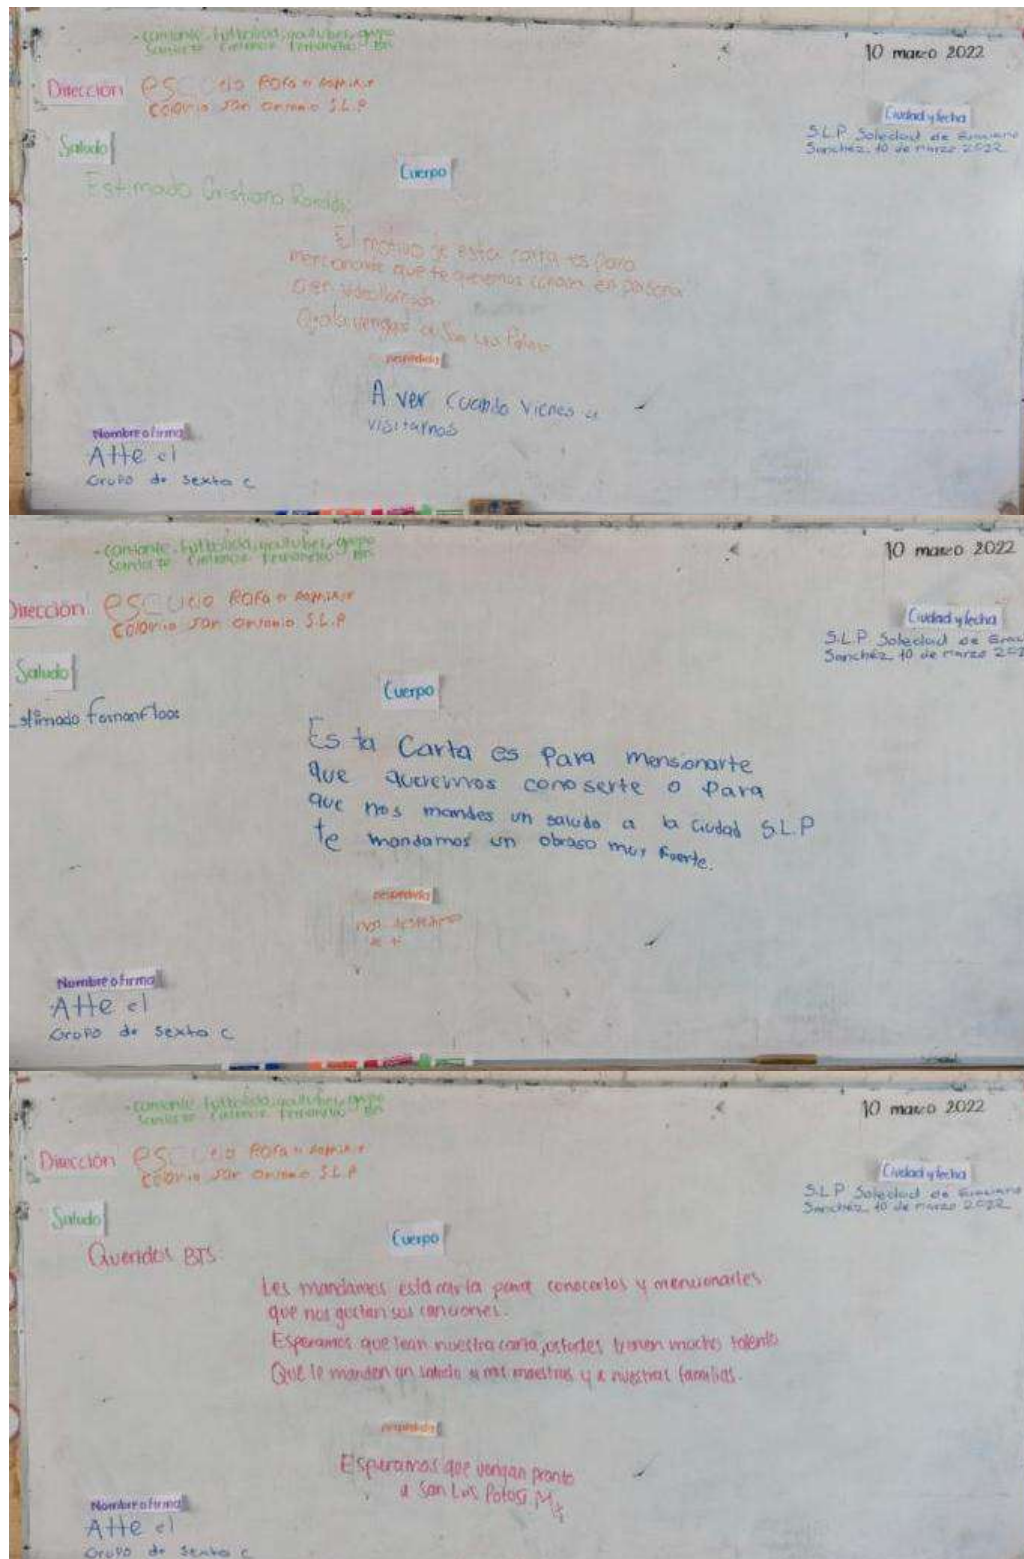 - cantante, futbolista, youtuber, grupo
BTS
10 marzo 2022
Dirección
colonia san antonio S.L.P
Ciudad y fecha
S.L.P Soledad de Graciano
Sanchez, 10 de marzo 2022
Saludo
Cuerpo
Estimado Cristiano Ronaldo:
El motivo de esta carta es para
mencionarte que te queremos conocer en persona
o en videollamada
Ojala vengas a San Luis Potosi
Despedida
A ver cuando vienes a
visitarnos
Nombre o firma
Atte el
Grupo de sexto c
- cantante, futbolista, youtuber, grupo
BTS
10 marzo 2022
Dirección
colonia san antonio S.L.P
Ciudad y fecha
S.L.P Soledad de
Sanchez, 10 de marzo 202
Saludo
Cuerpo
Estimado
Es ta Carta es Para mensionarte
que queremos conoserte o Para
que nos mandes un saludo a la Ciudad S.L.P
te mandamos un abraso muy fuerte.
Despedida
nos despedimos
de ti
Nombre o firma
Atte el
Grupo de sexto c
- cantante, futbolista, youtuber, grupo
BTS
10 marzo 2022
Dirección
colonia san antonio S.L.P
Ciudad y fecha
S.L.P Soledad de Graciano
Sanchez, 10 de marzo 2022
Saludo
Cuerpo
Queridos BTS:
Les mandamos esta carta para conocerlos y mencionarles
que nos gustan sus canciones.
Esperamos que lean nuestra carta, ustedes tienen mucho talento
Que le manden un saludo a mis maestras y a nuestras familias.
Despedida
Esperamos que vengan pronto
a San Luis Potosi Mx
Nombre o firma
Atte el
Grupo de sexto c